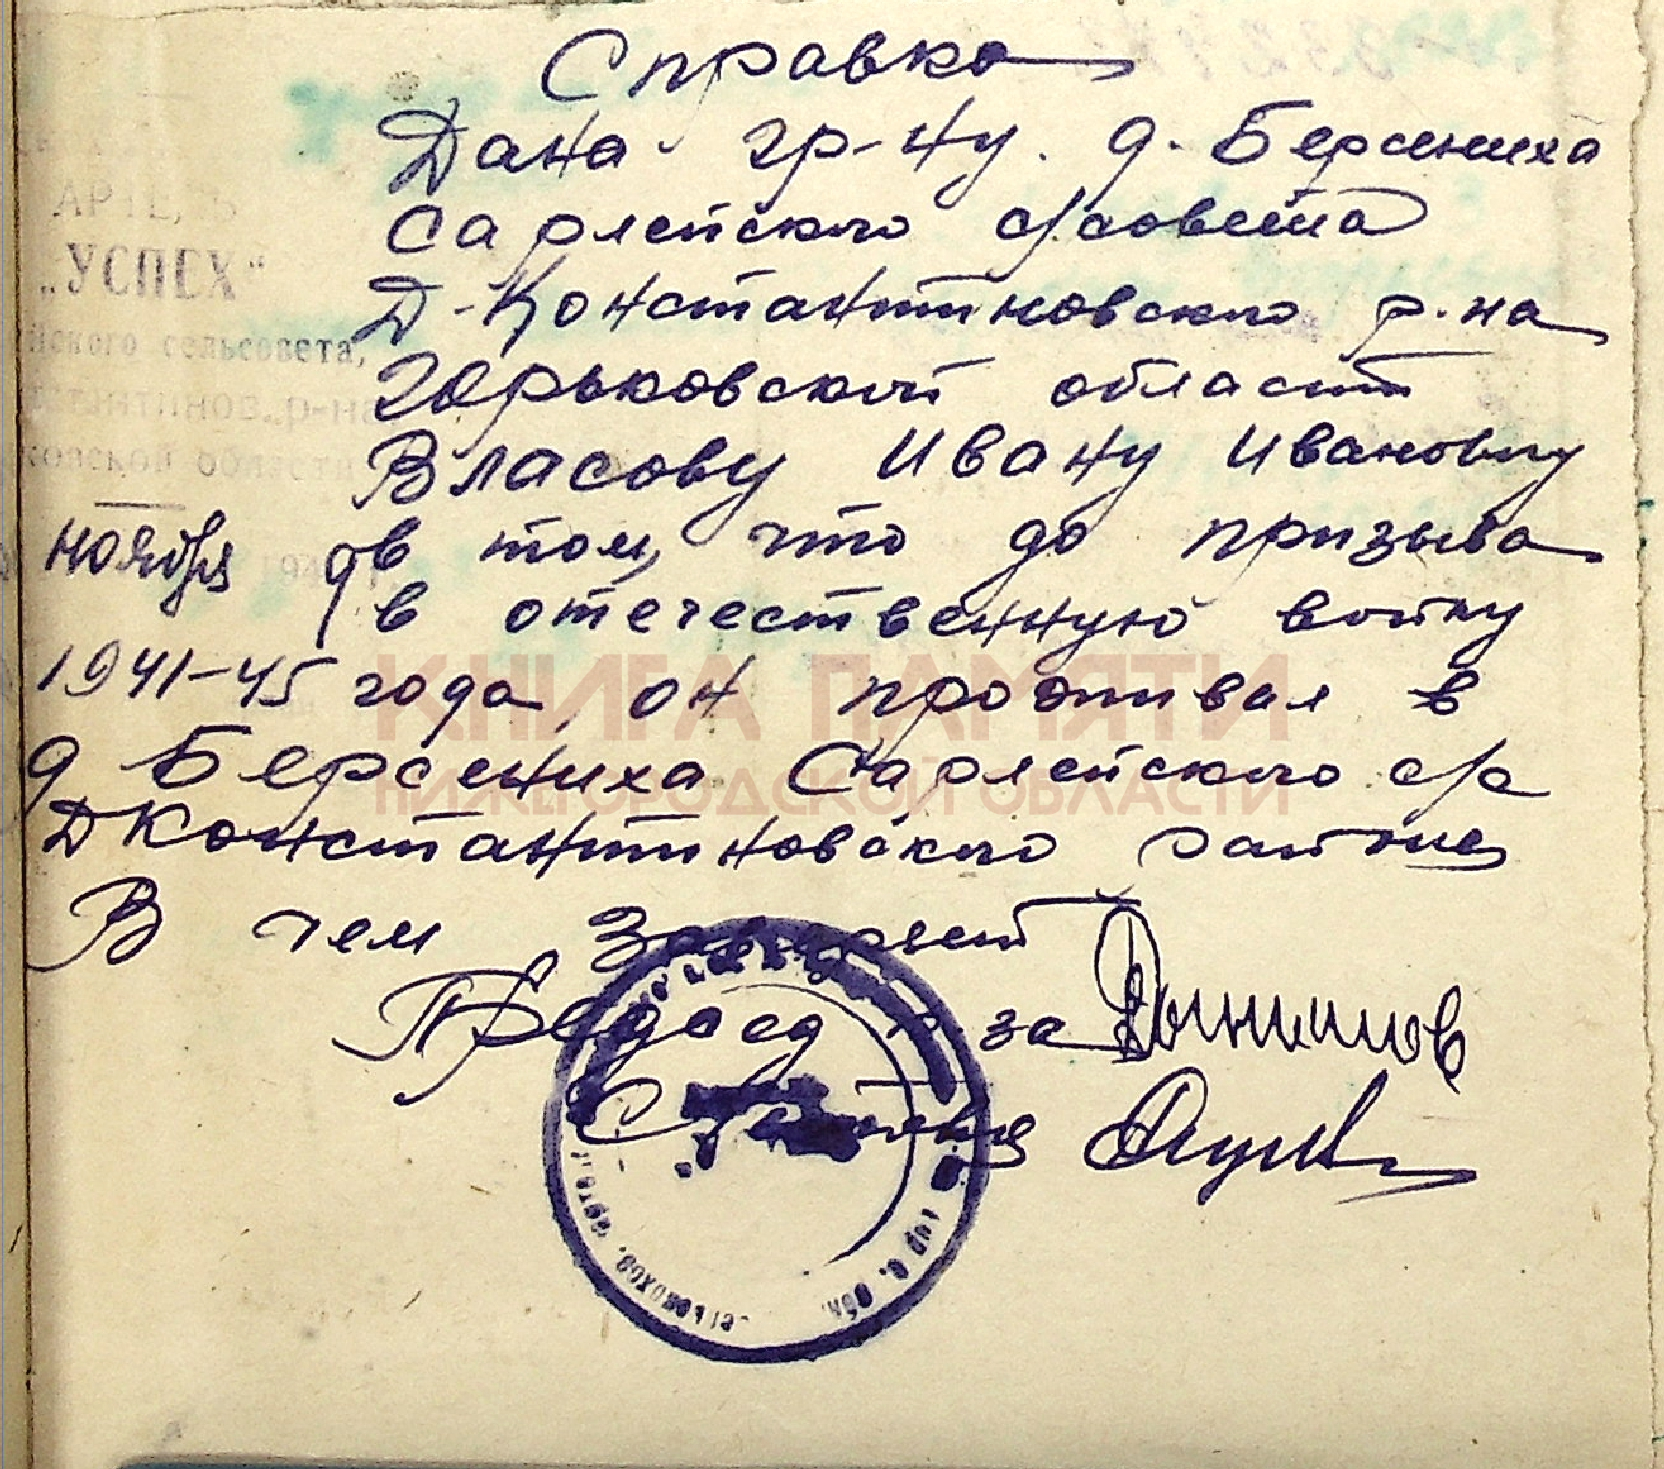 Справка
Дана гр-ну д. Берсениха
Сарлейского с/совета
Д-Константиновского р-на
Горьковской области
Власову Ивану Ивановичу
в том, что до призыва
в отечественную войну
1941-45 года, он проживал в
д Берсениха Сарлейского с/с
ДКонстантиновского района
В чем заверяет
Председ к-за
АРТЕЛЬ
„УСПЕХ“
йского сельсовета,
нтинов. р-на
ковской области
ноября
КНИГА ПАМЯТИ
НИЖЕГОРОДСКОЙ ОБЛАСТИ